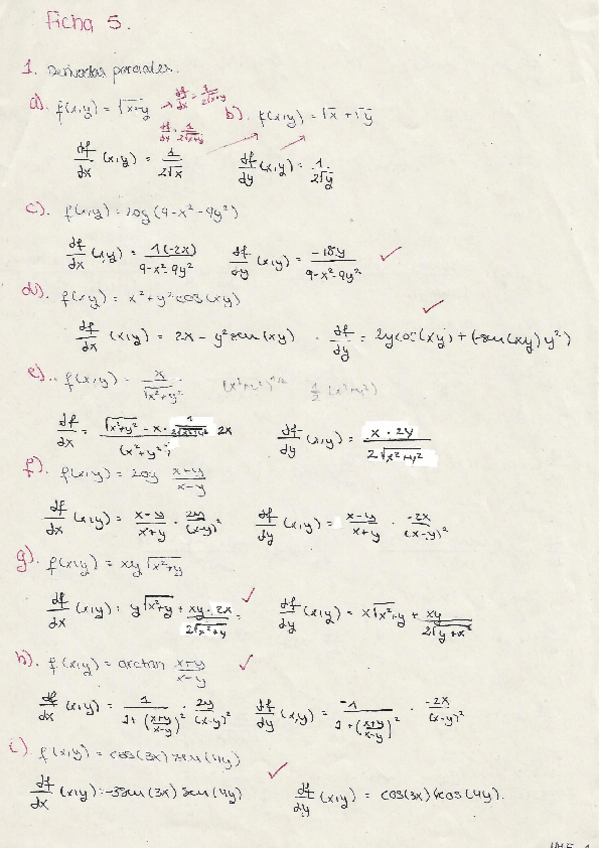 Ficha 5.
1. Derivadas parciales.
a). f(x,y) = √x+y → df/dx = 1/2√x+y b). f(x,y) = √x + √y
df/dy = 1/2√x+y
df/dx (x,y) = 1/2√x df/dy (x,y) = 1/2√y
c). f(x,y) = log (9-x²-9y²)
df/dx (x,y) = 1(-2x)/9-x²-9y² df/dy (x,y) = -18y/9-x²-9y² ✓
d). f(x,y) = x² + y² cos(xy) ✓
df/dx (x,y) = 2x - y² sen(xy) · df/dy = 2y cos(xy) + (-sen(xy) y²)
e). f(x,y) = x/√x²+y² (x²+y²)^1/2 1/2 (x²+y²)
df/dx = √x²+y² - x · 1/2√x²+y² 2x/(x²+y²) df/dy (x,y) = x · 2y/2√x²+y²
f). f(x,y) = log x+y/x-y
df/dx (x,y) = x-y/x+y · 2y/(x-y)² df/dy (x,y) = x-y/x+y · -2x/(x-y)²
g). f(x,y) = xy √x²+y
df/dx (x,y) : y√x²+y + xy · 2x/2√x²+y ✓ df/dy (x,y) = x√x²+y + xy/2√y+x²
h). f(x,y) = arctan x+y/x-y ✓
df/dx (x,y) = 1/1+(x+y/x-y)² · 2y/(x-y)² df/dy (x,y) = -1/1+(x+y/x-y)² · -2x/(x-y)²
i) f(x,y) = cos(3x) sen(4y) ✓
df/dx (x,y) : -3sen(3x) sen(4y) df/dy (x,y) = cos(3x) 4cos(4y).